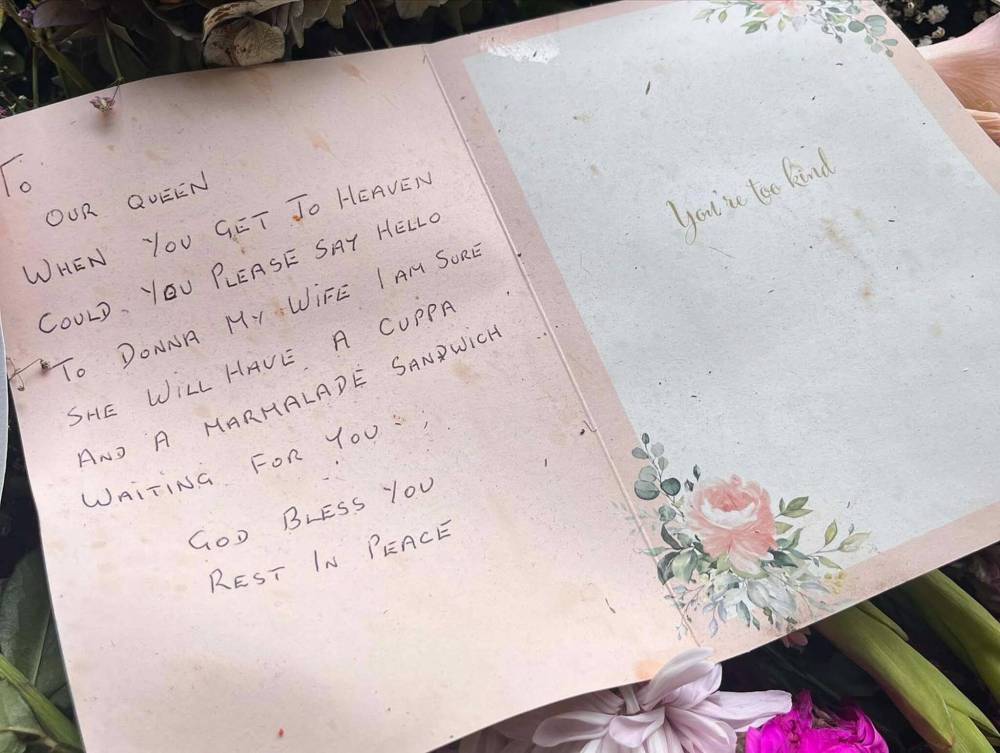 To
OUR QUEEN
WHEN YOU GET TO HEAVEN
COULD YOU PLEASE SAY HELLO
TO DONNA MY WIFE I AM SURE
SHE WILL HAVE A CUPPA
AND A MARMALADE SANDWICH
WAITING FOR YOU
GOD BLESS YOU
REST IN PEACE
You're too kind